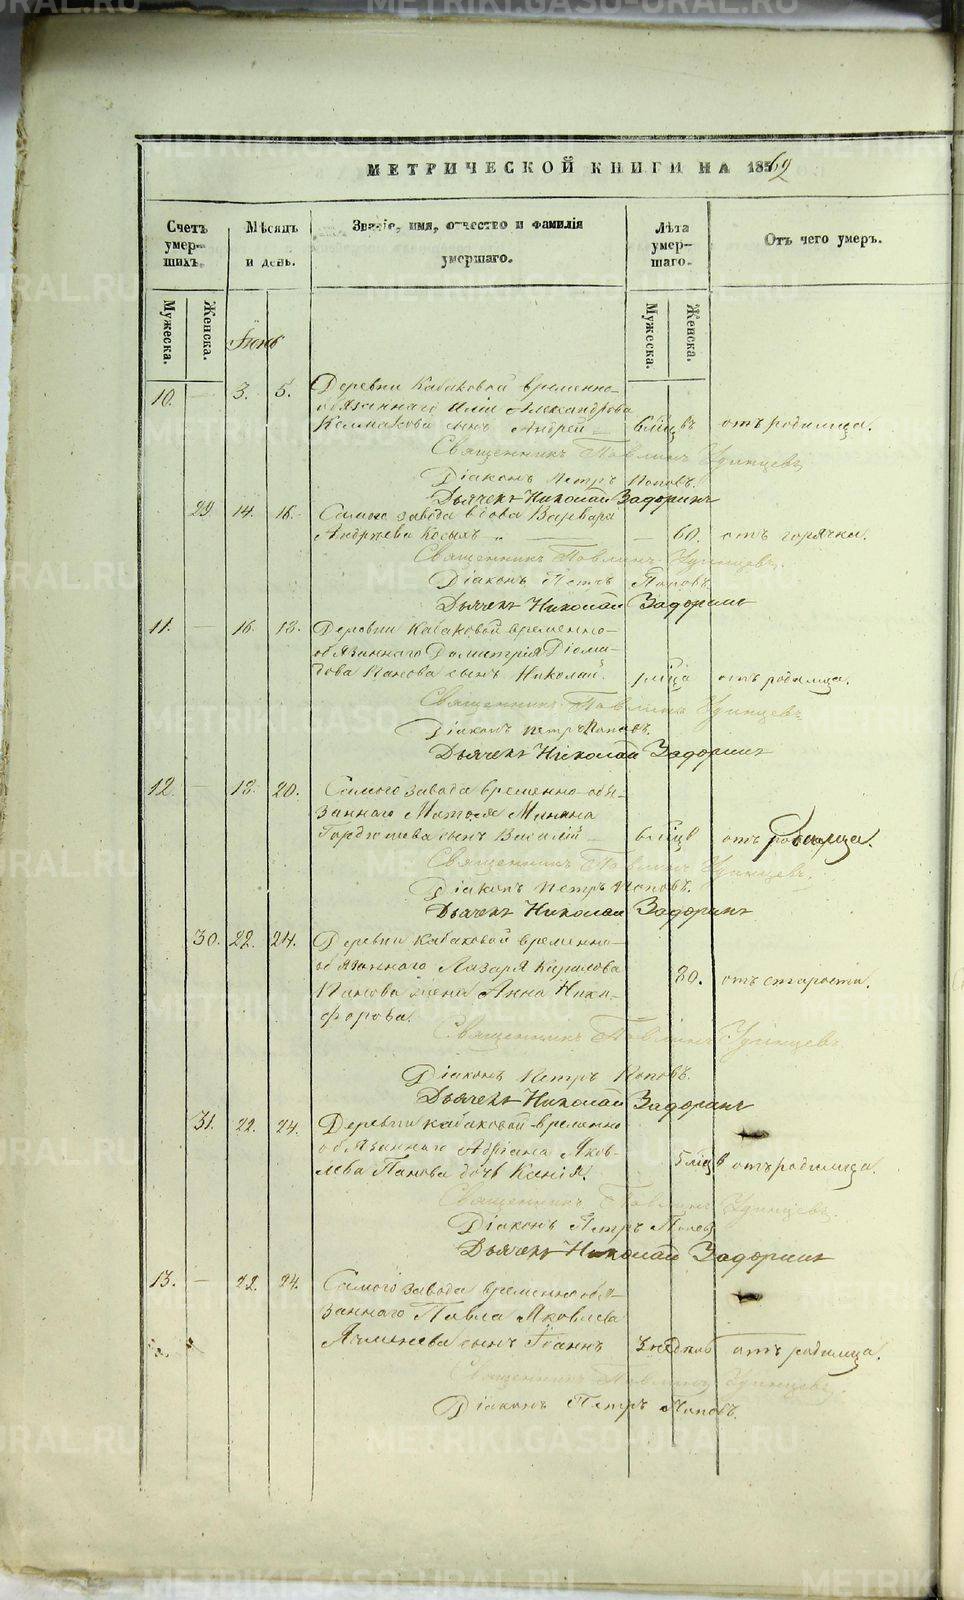 МЕТРИЧЕСКОЙ КНИГИ НА 1862
Счетъ умер-шихъ.
Мѣсяцъ и день.
Званіе, имя, отчество и фамилія умершаго.
Лѣта умер-шаго.
Отъ чего умеръ.
Мужеска.
Женска.
Мужеска.
Женска.
Іюнь
10. — 3. 5. Деревни Кабаковой временно-
обязаннаго Иліи Александрова
сынъ Андрей — отъ родимца.
Священникъ Павлинъ Удинцевъ
Діаконъ Петръ Поповъ.
Дьячекъ Николай Задоринъ
29 14. 16. Самого завода вдова Варвара
Андреева Косыхъ — — 60. отъ горячки.
Священникъ Павлинъ Удинцевъ.
Діаконъ Петръ Поповъ
Дьячекъ Николай Задоринъ
11. — 16. 18. Деревни Кабаковой временно-
обязаннаго Димитрія Діоми-
дова Панова сынъ Николай. отъ родимца.
Священникъ Павлинъ Удинцевъ
Діаконъ Петръ Поповъ.
Дьячекъ Николай Задоринъ
12. — 18. 20. Самого завода временно-обя-
заннаго Матвея Минина
сынъ Василій — отъ родимца.
Священникъ Павлинъ Удинцевъ.
Діаконъ Петръ Поповъ.
Дьячекъ Николай Задоринъ
30. 22. 24. Деревни Кабаковой временно-
обязаннаго Лазаря Кирилова
Панова жена Анна Ники-
форова. 80. отъ старости.
Священникъ Павлинъ Удинцевъ.
Діаконъ Петръ Поповъ.
Дьячекъ Николай Задоринъ
31. 22. 24. Деревни Кабаковой временно
обязаннаго Адріана Яков-
лева Панова дочь отъ родимца.
Священникъ Павлинъ Удинцевъ.
Діаконъ Петръ Поповъ
Дьячекъ Николай Задоринъ
13. — 22. 24. Самого завода временно обя-
заннаго Павла Яковлева
сынъ Іоаннъ отъ родимца.
Священникъ Павлинъ Удинцевъ.
Діаконъ Петръ Поповъ.
METRIKI.GASO-URAL.RU